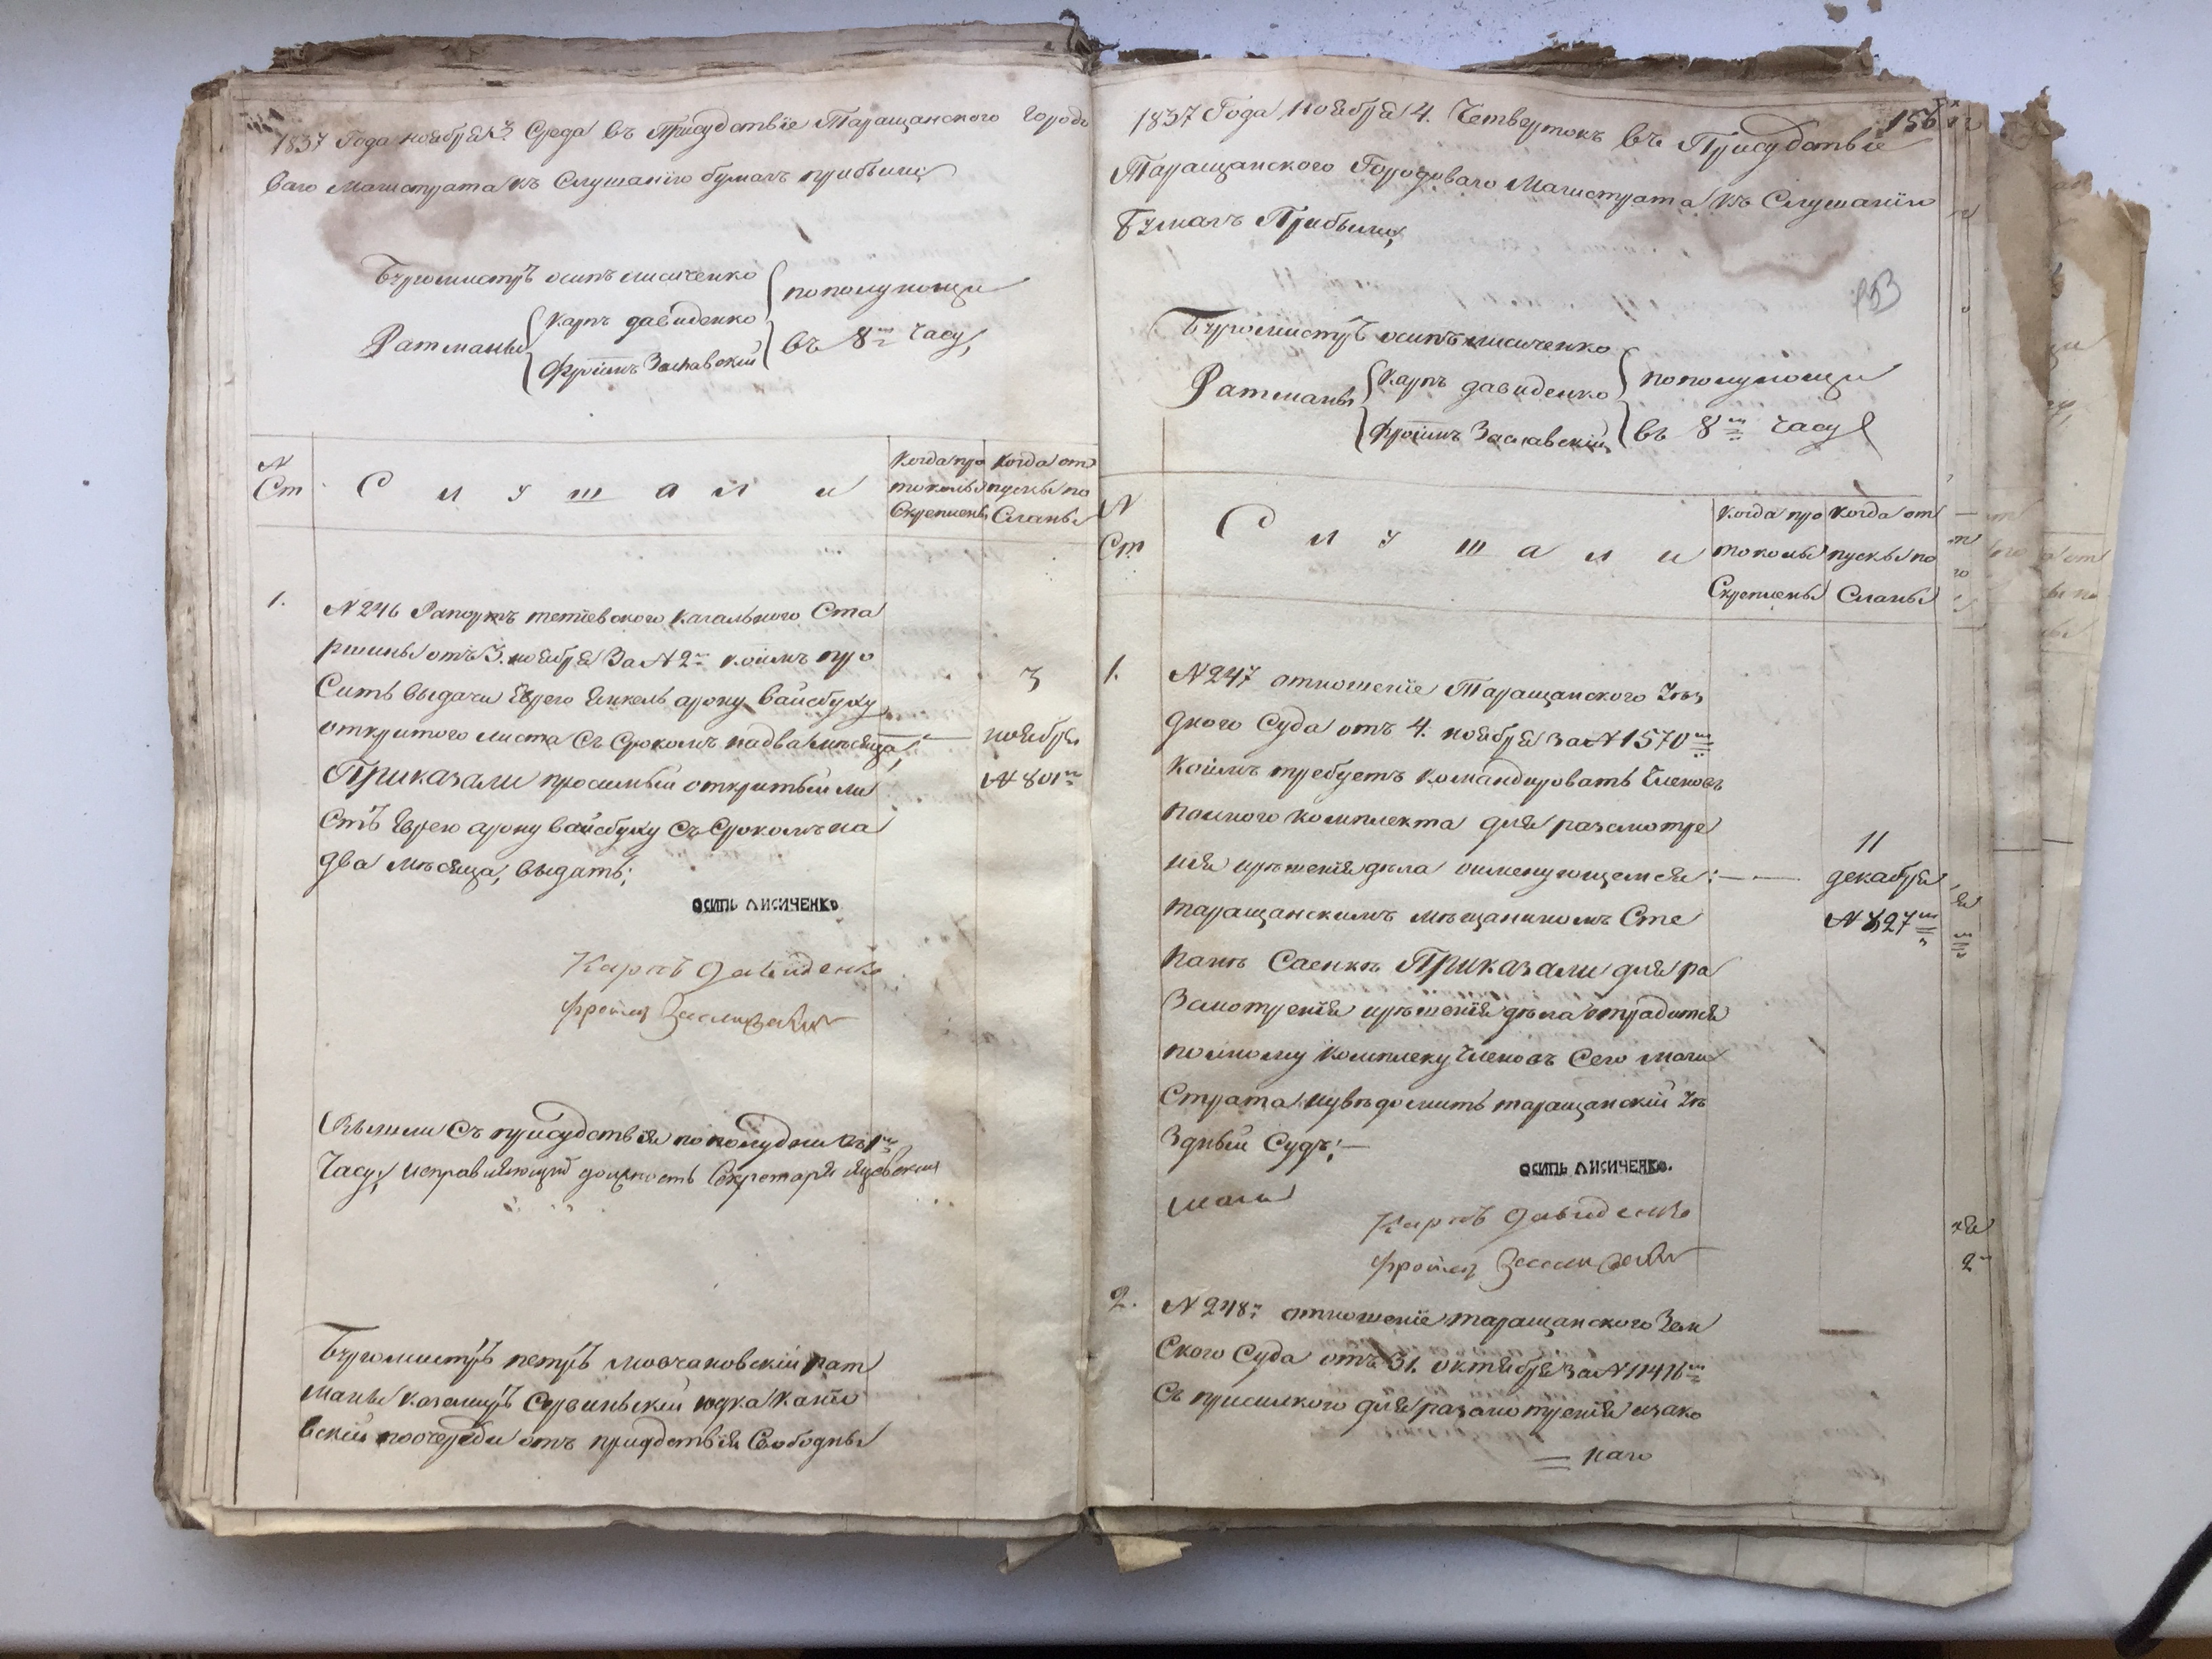 1837 Года ноября 3. Среда въ Присудствіе Таращанского Городо
ваго Магистрата къ Слушанію бумагъ прибыли
Бургомистръ осипъ лисиченко
Ратманы
карпъ давиденко
Фроимъ Заславскій
пополуночи
въ 8 часу
N
Ст
Слушали
Когда про
токолы
Скреплены
Когда от
пуски по
Сланы
1.
N 246 Рапортъ тетіевского кагального Ста
ршины отъ 3. ноября За N 2 коимъ про
Ситъ выдачи Еврею Янкель арону вайсбуку
открытого листа Съ Срокомъ на два мѣсяца,
Приказали просимый открытый ли
Стъ Еврею арону вайсбуку Съ Срокомъ на
два мѣсяца, выдать;
3
ноября
N 801
ОСИПЬ ЛИСИЧЕНКО
Карпъ Давиденко
Фроим Заславский
Вышли Съ присудствія пополудни въ 1
Часу, исправляющій должность Секретаря
Бургомистръ петръ мовчановскій рат
маны Сервинскій
вскій поочереди отъ присудствія Свободны
1837 Года ноября 4. Четвертокъ въ Присудствіе
156
Таращанского Городоваго Магистрата къ Слушанію
Бумагъ Прибыли,
153
Бургомистръ осипъ лисиченко
Ратманы
Карпъ давиденко
Фроимъ Заславскій
пополуночи
въ 8 часу
N
Ст
Слушали
Когда про
токолы
Скреплены
Когда от
пуски по
Сланы
1.
N 247 отношеніе Таращанского Уѣз
дного Суда отъ 4. ноября за N 1570
коимъ требуетъ командировать Членовъ
полного комплекта для разсмотре
нія ирѣшенія дѣла оименующемся
таращанскимъ мѣщаниномъ Сте
паномъ Саенкѣ Приказали для ра
Змотренія ирѣшенія дѣла отрадится
полному комплеку Членовъ Сего маги
Страта, иувѣдомить таращанскій Уѣ
Здный Судъ;
11
декабря
N 827
ОСИПЬ ЛИСИЧЕНКО.
Карпъ Давиденко
Фроим Заславский
2.
N 248 отношеніе таращанского Зем
Ского Суда отъ 31. октября За N 11416
Съ присилкою для разсмотренія изако
наго